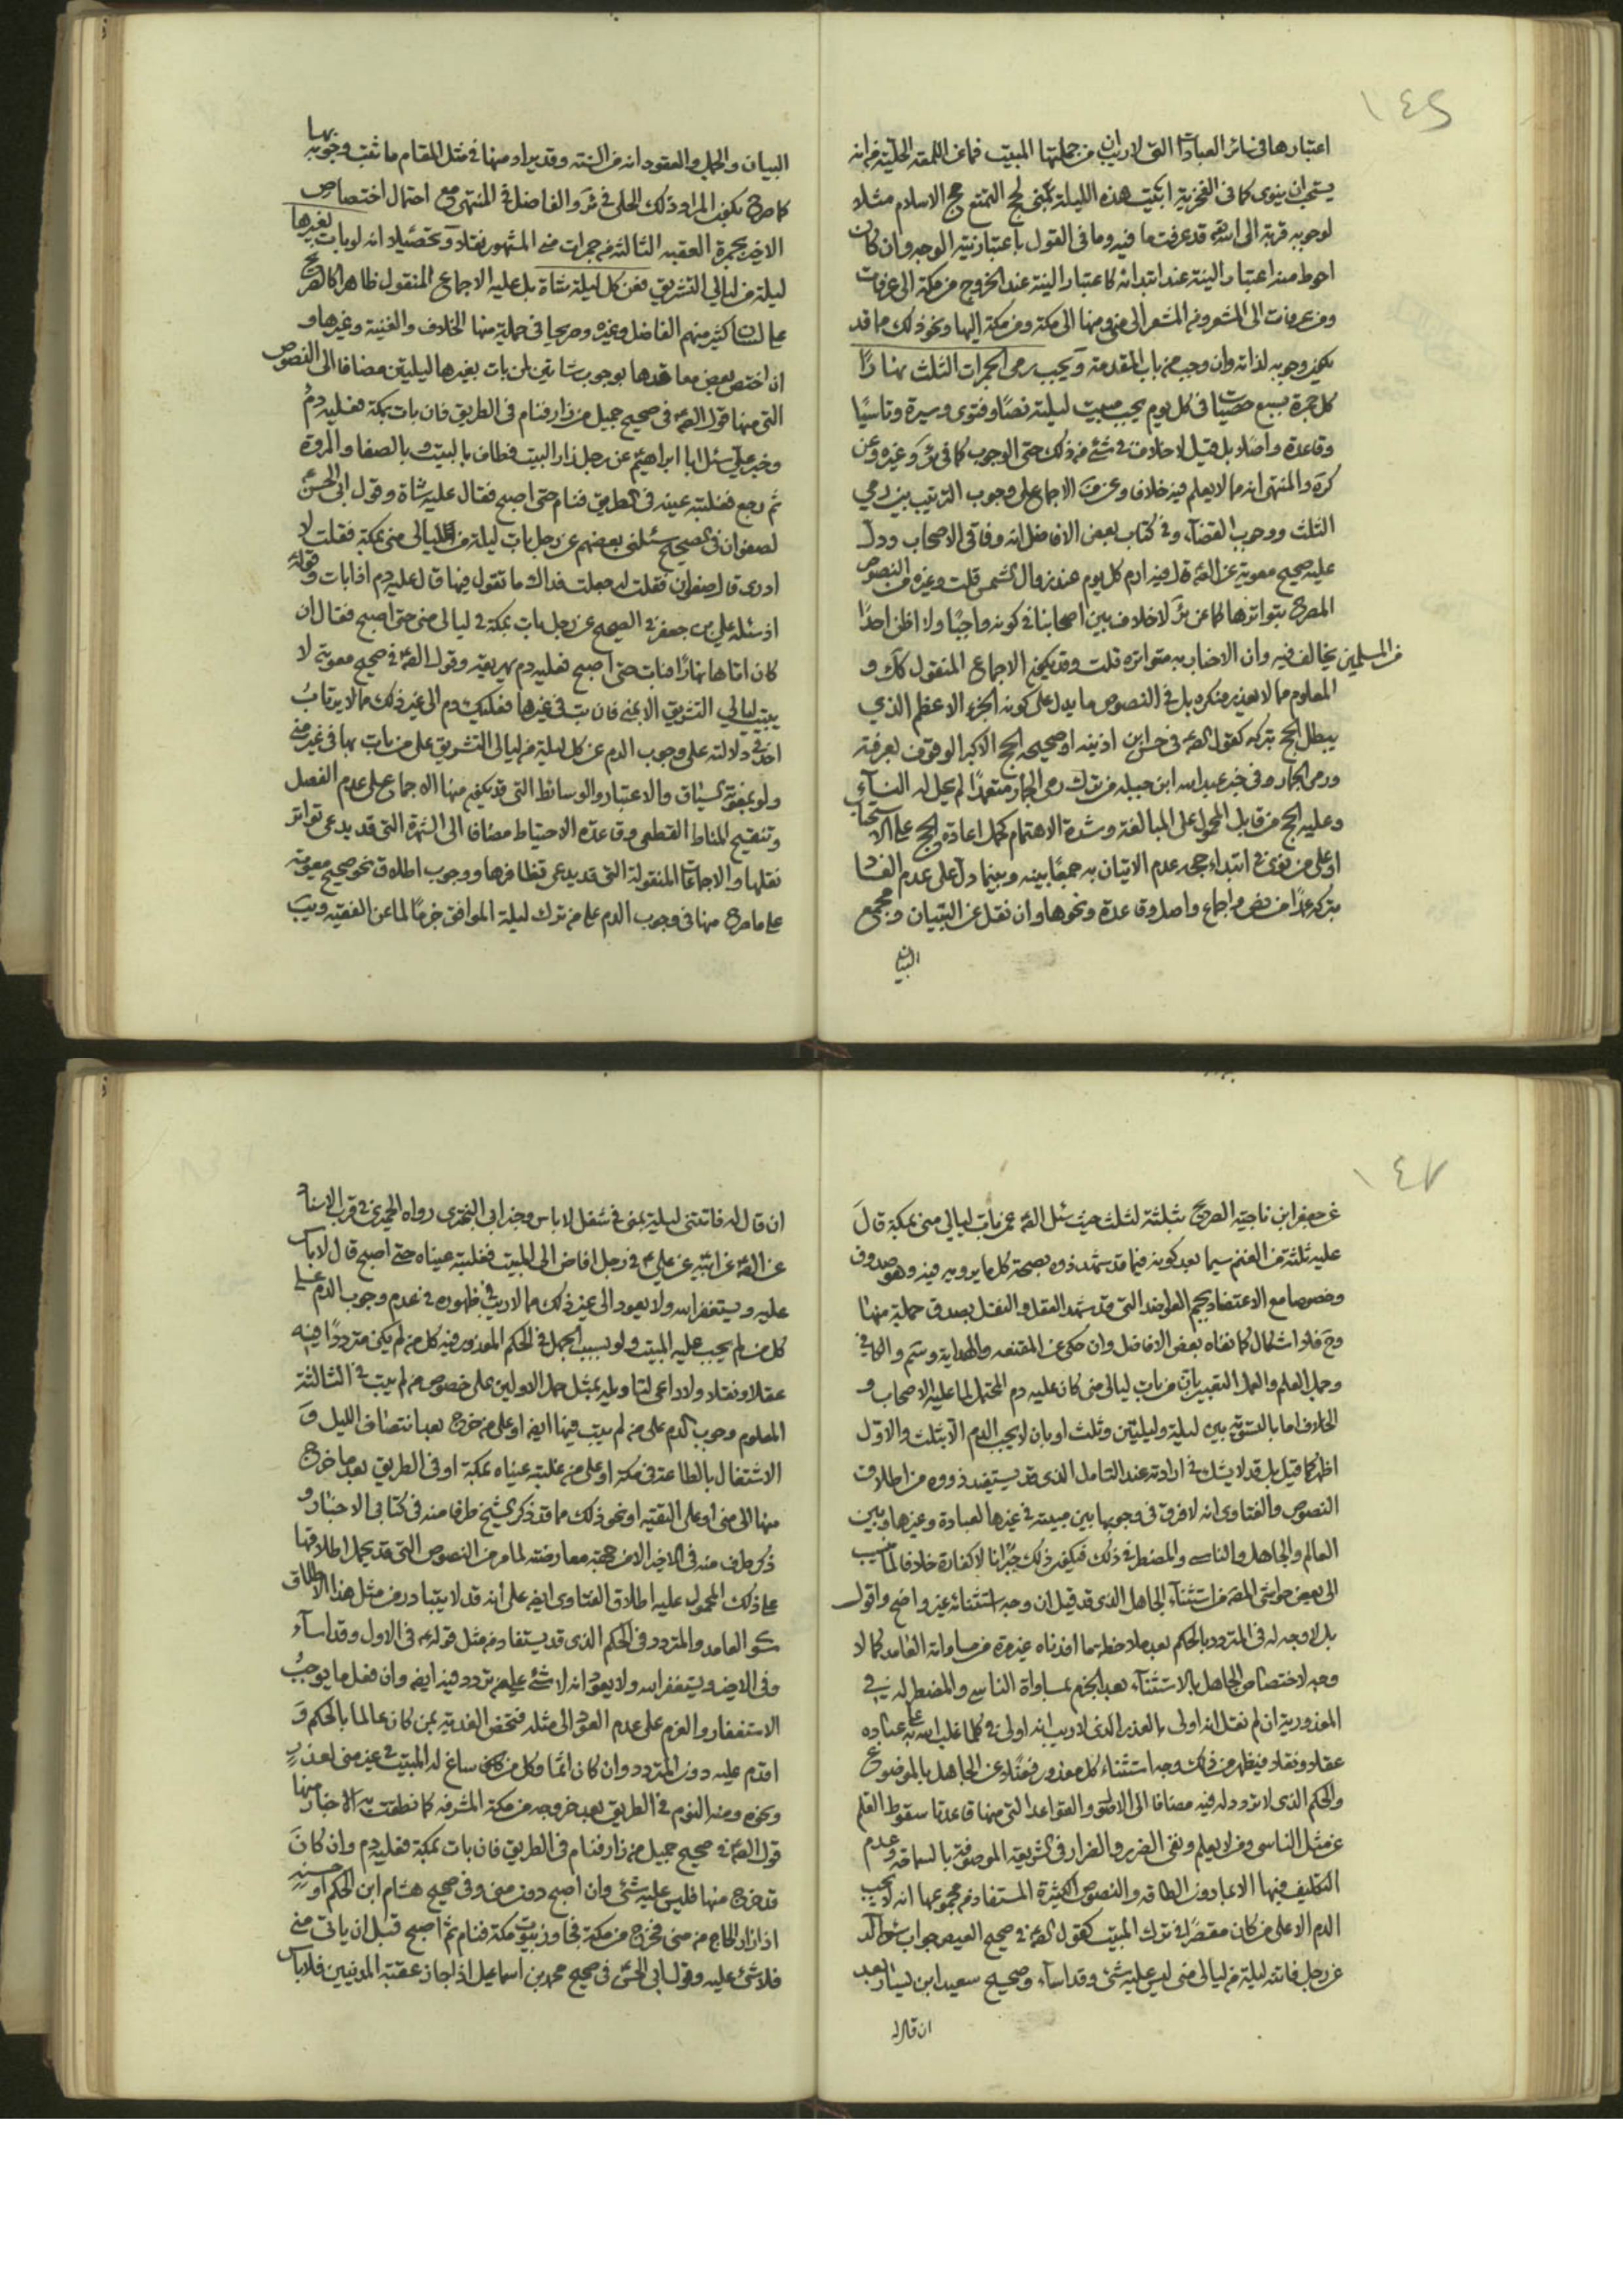 ١٤٦
اعتبارها في سائر العبادات التي لا ريب ان من جملتها المبيت فما عن اللمعة الحلية من انه
يستحب ان ينوي كما في الفخرية ابيت هذه الليلة بمنى لحج التمتع حج الاسلام مثلا
لوجوبه قربة الى الله قد عرفت ما فيه وما في القول باعتبار نية الوجه وان كان
احوط منه اعتبار النية عند ابتدائه كاعتبار النية عند الخروج من مكة الى عرفات
ومن عرفات الى المشعر ومن المشعر الى منى ومنها الى مكة ومن مكة اليها ونحو ذلك مما قد
يكون وجوبه لذاته وان وجب من باب المقدمة ويجب رمى الجمرات الثلث نهارا
كل جمرة بسبع حصيات في كل يوم يجب مبيت ليلته نصا وفتوى وسيرة وتاسيا
وقاعدة واصلا بل قيل لا خلاف في شئ من ذلك حتى الوجوب كما في وغيره وعن
كره والمنتهى انه مما لا يعلم فيه خلاف وعن الاجماع على وجوب الترتيب بين رمي
الثلث ووجوب القضآء وفي كتاب بعض الافاضل انه وفاقي الاصحاب ودل
عليه صحيح معوية عن قال فيه ارم كل يوم عند زوال الشمس قلت وغيره من النصوص
المصرح بتواترها كما عن لا خلاف بين اصحابنا في كونه واجبا ولا اظن احدا
من المسلمين يخالف فيه وان الاخبار به متواترة قلت وقد يكون الاجماع المنقول كك و
المعلوم مما لا يعذر منكره بل في النصوص ما يدل على كونه الجزء الاعظم الذي
يبطل الحج بتركه كقول في حسن ابن اذينه او صحيحه الحج الاكبر الوقوف بعرفة
ورمى الجمار وفي خبر عبدالله ابن جبله من ترك رمى الجمار متعمدا لم يحل له النساء
وعليه الحج من قابل المحمول على المبالغة وشدة الاهتمام كحمل اعادة الحج على الاستحباب
او على من نوى في ابتداء حجه عدم الاتيان به جمعا بينه وبينما دل على عدم الفساد
بتركه عمدا من نص واجماع واصل وقاعدة ونحوها وان نقل عن التبيان ومجمع
البيان
البيان والجمل والعقود انه من السنة وقد يراد منها في مثل المقام ما ثبت وجوبه بها
كما صرح بكون المراد ذلك الحلي في ئر والفاضل في المنتهى مع احتمال اختصاص
الاخير بجمرة العقبة الثالثة من جمرات منى المشهور نقلا وتحصيلا انه لو بات بغيرها
ليلة من ليالي التشريق فعن كل ليلة شاة بل عليه الاجماع المنقول ظاهرا كالصريح
على لسان اكثر منهم الفاضل وغيره وصريحا في جملة منها الخلاف والغنية وغيرها و
ان اختص بعض معاقدها بوجوب شاتين لمن بات بغيرها ليلتين مضافا الى النصوص
التي منها قول في صحيح جميل من زار فنام في الطريق فان بات بمكة فعليه دم
وخبر علي سئل ابا ابراهيم عن رجل زار البيت فطاف بالبيت وبالصفا والمروة
ثم رجع فغلبته عينه في الطريق فنام حتى اصبح فقال عليه شاة وقول ابي الحسن
لصفوان في الصحيح سئلني بعضهم عن رجل بات ليلة من ليالي منى بمكة فقلت لا
ادرى قال صفوان فقلت له جعلت فداك ما تقول فيها قال عليه دم اذا بات وقوله
اذ سئله علي بن جعفر في الصحيح عن رجل بات بمكة في ليالي منى حتى اصبح فقال ان
كان اتاها نهارا فبات حتى اصبح فعليه دم يهريقه وقول في صحيح معوية لا
يبيت ليالي التشريق الا بمنى فان بت في غيرها فعليك دم الى غير ذلك مما لا يرتاب
احد في دلالته على وجوب الدم عن كل ليلة من ليالي التشريق على من بات بها في غير منى
ولو بمعونة السياق والاعتبار والوسائط التي قد يكون منها الاجماع على عدم الفصل
وتنقيح المناط القطعي وقاعدة الاحتياط مضافا الى الشهرة التي قد يدعى تواتر
نقلها والاجماعات المنقولة التي قد يدعى تظافرها ووجوب اطلاق نحو صحيح معوية
على ما صرح منها في وجوب الدم على من ترك ليلة الموافق خرما لما عن الفقيه ويب
١٤٧
عن جعفر ابن ناجيه الصريح بثلثة لثلث حيث سئل عمن بات ليالي منى بمكة قال
عليه ثلثة من الغنم سيما بعد كونه فيما قد شهد ذوه بصحة كل ما يرويه فيه وهو صدوق
وخصوصا مع الاعتضاد بجم القواعد التي قد شهد العقل والنقل بصدق جملة منها
وح فلا اشكال كما نفاه بعض الافاضل وان حكى عن المقنعه والهداية وسم والكافي
وجمل العلم والعمل التعبير بان من بات ليالي منى كان عليه دم المحتمل لما عليه الاصحاب و
الخلاف اما بالتسوية بين ليلة وليلتين وثلث او بان لا يجب الدم الا بثلث والاول
اظهر كما قيل بل قد لا يشك في ارادته عند التامل الذى قد يستفيد ذووه من اطلاق
النصوص والفتاوى انه لا فرق في وجوبها بين مبيته في غيرها لعبادة وغيرها وبين
العالم والجاهل والناسى والمضطر في ذلك فيكون ذلك جبرانا لا كفارة خلافا لما نسب
الى بعض حواشي من استثناء الجاهل الذي قد قيل ان وجه استثنائه غير واضح واقول
بل لا وجه له في المتردد بالحكم بعد ملاحظه ما افدناه غير مرة من مساواته العامد كما لا
وجه لاختصاص الجاهل بالاستثناء بعد الجزم بمساواة الناسي والمضطر له في
المعذورية ان لم نقل انه اولى بالعذر الذي لا ريب انه اولى في كلما غلب الله به على عباده
عقلا ونقلا فيظهر من ذلك وجه استثناء كل معذور فضلا عن الجاهل بالموضوع
والحكم الذى لا تردد له فيه مضافا الى الاصل والقواعد التي منها قاعدتا سقوط القلم
عن مثل الناسى ومن لا يعلم ونفى الضرر والضرار في الشريعة الموصوفة بالسماحة وعدم
التكليف فيها الا بما دون الطاقه والنصوص الكثيرة المستفاد من مجموعها انه لا يجب
الدم الا على من كان مقصرا في ترك المبيت كقول في صحيح العيص جواب سؤاله
عن رجل فاتته ليلة من ليالي منى ليس عليه شئ وقد اساء وصحيح سعيد ابن يسار بعد
ان قال له
ان قال له فاتتنى ليلة بمنى في شغل لا باس وخبر ابى البختري رواه الحميري في قرب الاسناد
عن عن ابيه عن علي في رجل افاض الى البيت فغلبته عيناه حتى اصبح قال لا باس
عليه ويستغفر الله ولا يعود الى غير ذلك مما لا ريب في ظهوره في عدم وجوب الدم على
كل من لم يجب عليه المبيت ولو بسبب الجهل في الحكم المعذور فيه كل من لم يكن مترددا فيه
عقلا ونقلا ولا داعى لتاويله بمثل حمل الاولين على خصوص من لم يبت في الثالثة
المعلوم وجوب الدم على من لم يبت فيها ايضا او على من خرج بعد انتصاف الليل و
الاشتغال بالطاعة في مكة او على من غلبته عيناه بمكة او في الطريق بعد ما خرج
منها الى منى او على التقية او نحو ذلك مما قد ذكر الشيخ طرفا منه في كتابى الاخبار و
ذكر طرف منه في الاخير لا من جهة معارضته لما مر من النصوص التي قد يحمل اطلاقها
على ذلك المحمول عليه اطلاق الفتاوى ايضا على انه قد لا يتبادر من مثل هذا الاطلاق
سوى العامد والمتردد في الحكم الذى قد يستفاد من مثل قوله في الاول وقد اساء
وفي الاخير ويستغفر الله ولا يعود انه لا شئ على من تردد فيه ايضا وان فعل ما يوجب
الاستغفار والعزم على عدم العود الى مثله فتختص الفدية بمن كان عالما بالحكم و
اقدم عليه دون المتردد وان كان اثما وكل من ساغ له المبيت في غير منى لعذر
ونحوه ومنه النوم في الطريق بعد خروجه من مكة المشرفه كما نطقت به الاخبار منها
قول في صحيح جميل من زار فنام في الطريق فان بات بمكة فعليه دم وان كان
قد خرج منها فليس عليه شئ وان اصبح دون منى وفي صحيح هشام ابن الحكم او حسنه
اذا زار الحاج من منى فخرج من مكة فجاوز بيوت مكة فنام ثم اصبح قبل ان ياتى منى
فلا شئ عليه وقول ابي الحسن في صحيح محمد بن اسماعيل اذا جاز عقبة المدنيين فلا باس